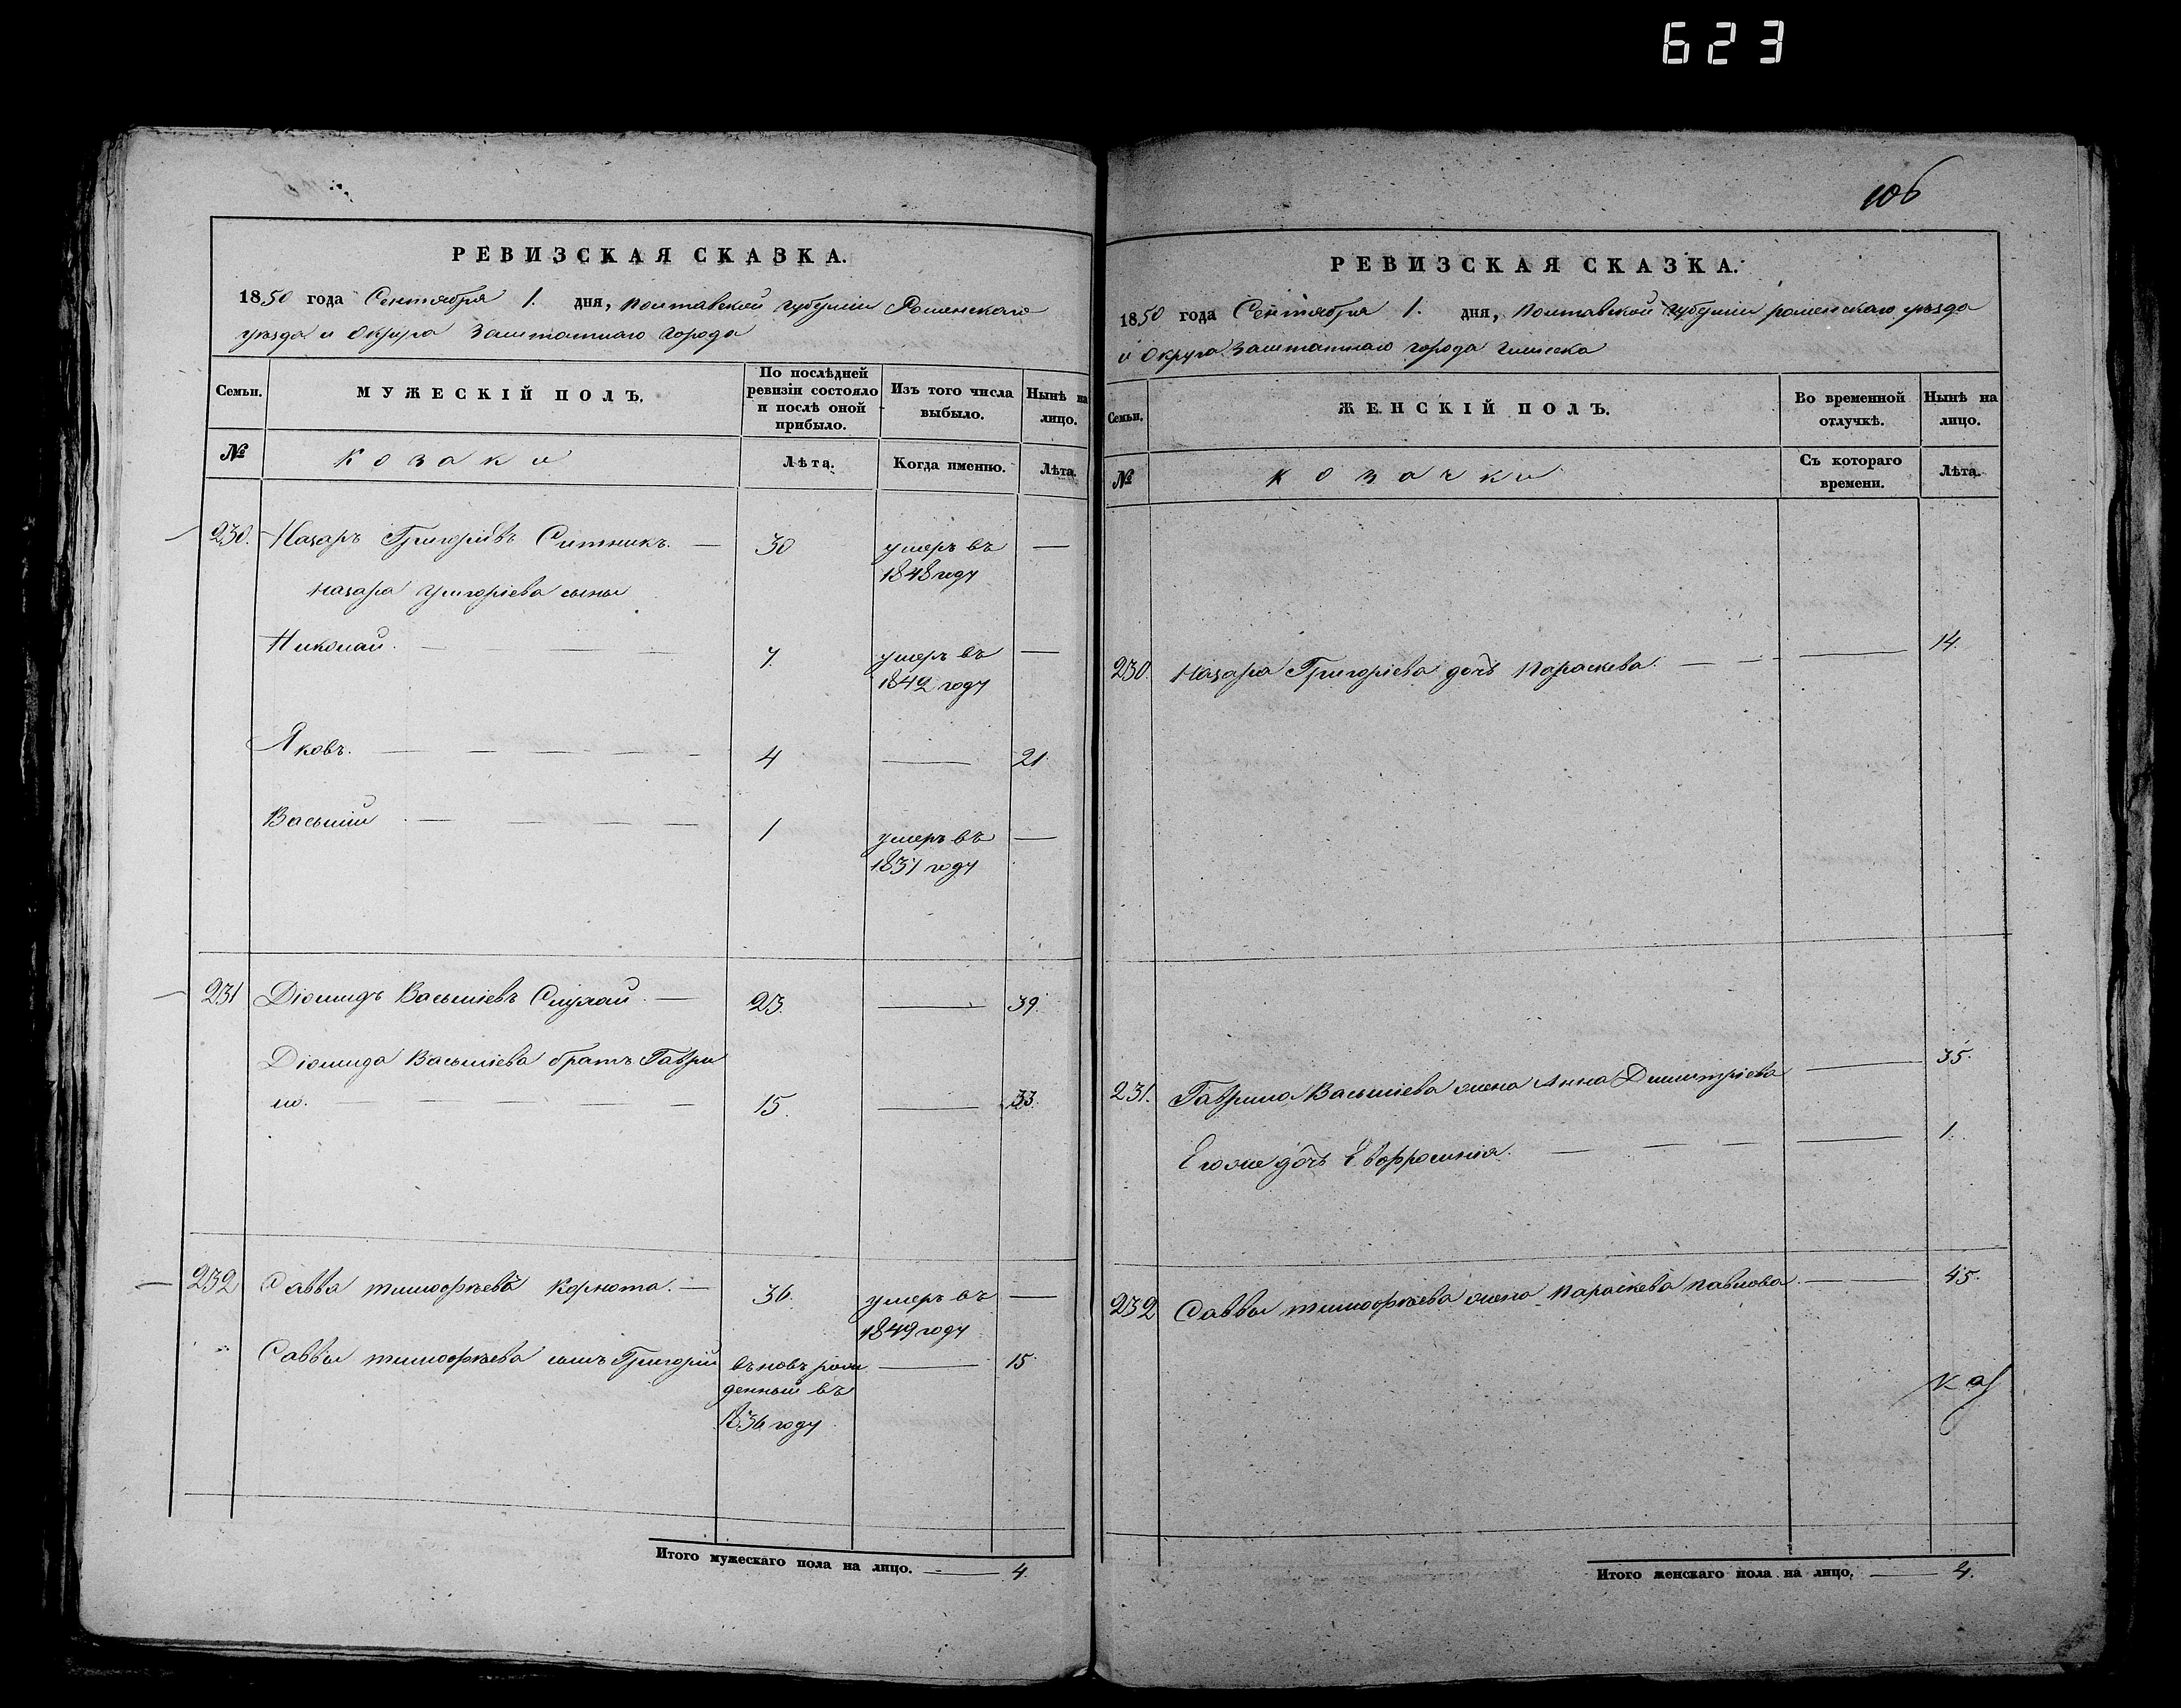 623
РЕВИЗСКАЯ СКАЗКА.
1850 года Сентября 1. дня, полтавской губерніи Роменскаго
уѣзда и округа Заштатнаго города
Семьи.
МУЖЕСКІЙ ПОЛЪ.
По послѣдней
ревизіи состояло
и послѣ оной
прибыло.
Изъ того числа
выбыло.
Нынѣ на
лицо.
№
козаки
Лѣта.
Когда именно.
Лѣта.
230. Назаръ Григоріевъ Ситникъ. — 30 умеръ въ —
1848 году
назара григоріева сыны
Николай. — — — 7. умеръ въ —
1842 году
Яковъ. — — — — — 4 — 21
Василій — — — — 1 умеръ въ —
1831 году
231 Діомидъ Василіевъ Слухай. — 23. — 39.
Діомида Василіева братъ Гаври
ло. — — — — 15. — 33.
232 Савва тимофѣевъ Корнота. — 36. умеръ въ —
1849 году
Саввы тимофѣева сынъ Григорій вновь рож — 15
денный въ
1836 году
Итого мужескаго пола на лицо. — 4.
106
РЕВИЗСКАЯ СКАЗКА.
1850 года Сентября 1. дня, полтавской губерніи роменскаго уѣзда
и округа Заштатнаго города глинска
Семьи.
ЖЕНСКІЙ ПОЛЪ.
Во временной
отлучкѣ.
Нынѣ на
лицо.
№
козачки
Съ котораго
времени.
Лѣта.
230. Назара Григоріева дочь Параскева. — — — 14.
231. Гаврила Василіева жена Анна Димитріева — 35.
Его же дочь Евфросинія. — — — — 1.
232 Саввы тимофѣева жена Параскева павлова. — — 45.
Итого женскаго пола на лицо. — 4.